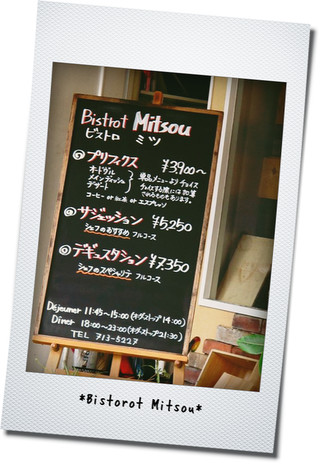 Bistrot Mitsou
ビストロ ミツ
プリフィックス ¥3,900~
オードヴル
メインディッシュ
デザート
単品メニューよりチョイス
チョイスする際には加算
されるものもあります。
コーヒー or 紅茶 or エスプレッソ
サジェッション ¥5,250
シェフのおすすめ フルコース
デギュスタション ¥7,350
シェフのスペシャリテ フルコース
Déjeuner 11:45~15:00 (ラストオーダー 14:00)
Dîner 18:00~23:00 (ラストオーダー 21:30)
TEL 713-5227
*Bistorot Mitsou*